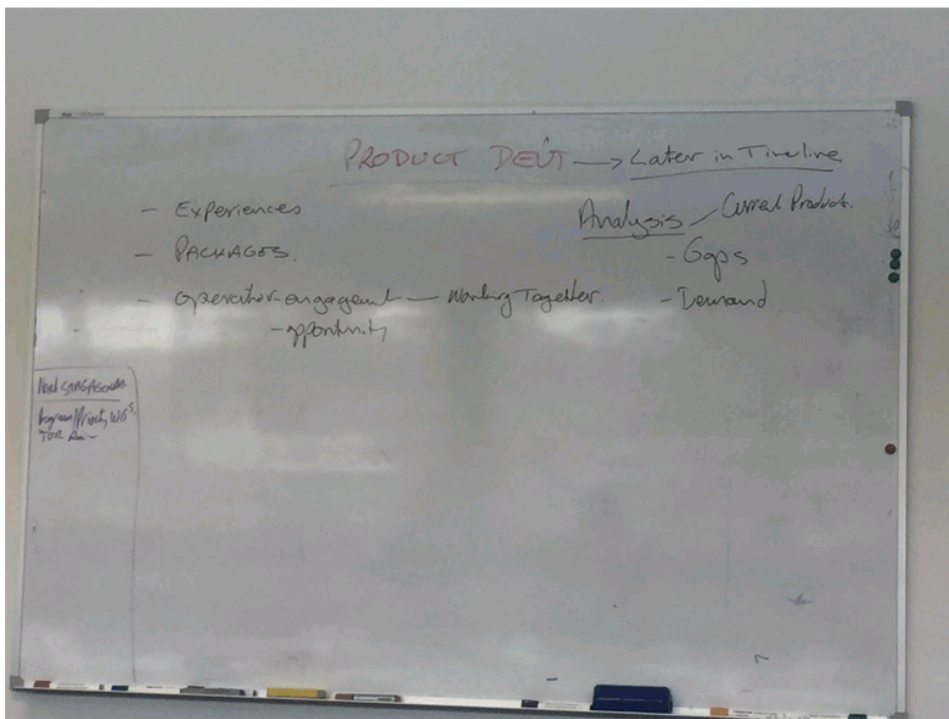 PRODUCT DEV'T → Later in Timeline
- Experiences
- PACKAGES.
- operator engagement - Working Together.
- opportunity
Analysis / Current Product.
- Gaps
- Demand
TOR